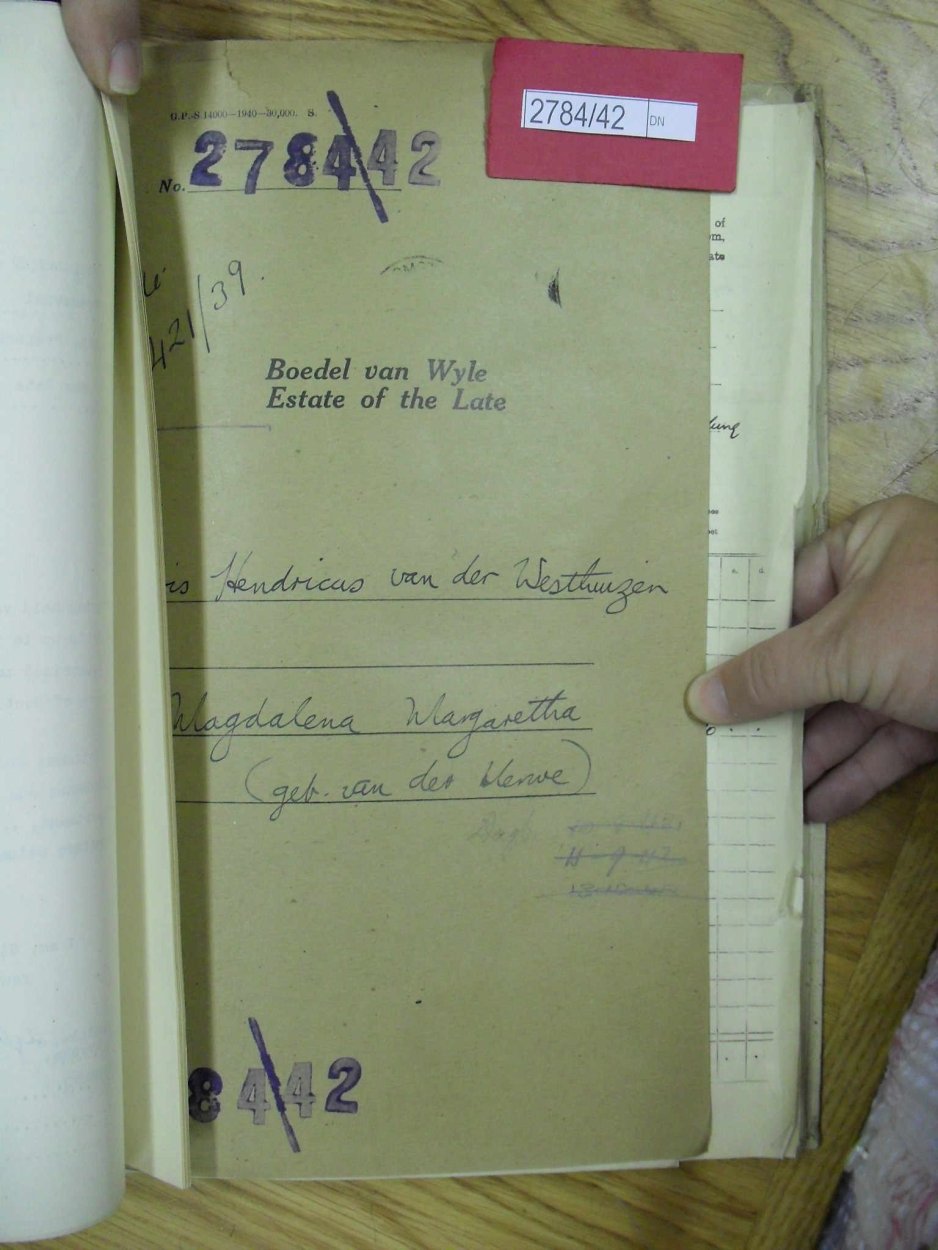 G.P.-S 14000—1940—30,000. S.
2784/42 DN
No. 2784/42
421/39.
Boedel van Wyle
Estate of the Late
is Hendricus van der Westhuizen
Magdalena Margaretha
(geb. van der Merwe)
11-9-42
84/42
of
om,
ate
s. d.